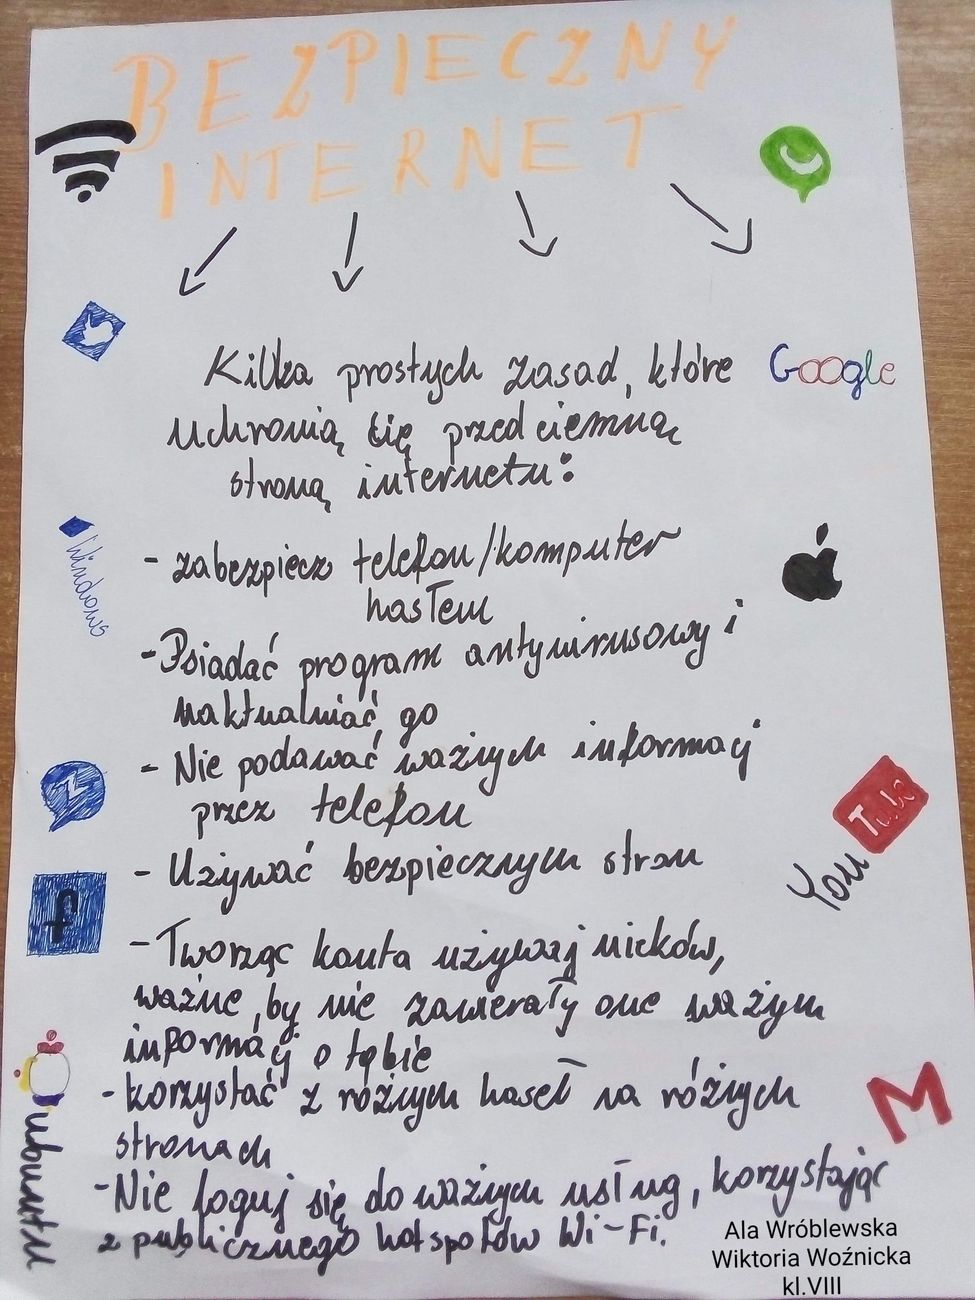 BEZPIECZNY
INTERNET
Kilka prostych zasad, które
Google
uchronią cię przed ciemną
stroną internetu:
Windows
- zabezpiecz telefon/komputer
hasłem
- Psiadać program antywirusowy i
uaktualniać go
- Nie podawać ważnych informacj
przez telefon
You Tube
- Używać bezpiecznych stron
f
- Tworząc konta używaj nicków,
ważne, by nie zawierały one ważnych
informacj o tobie
- korzystać z różnych haseł na różnych
M
stronach
ubuntu
- Nie loguj się do ważnych usług, korzystając
z publicznego hotspotów Wi-Fi.
Ala Wróblewska
Wiktoria Woźnicka
kl.VIII